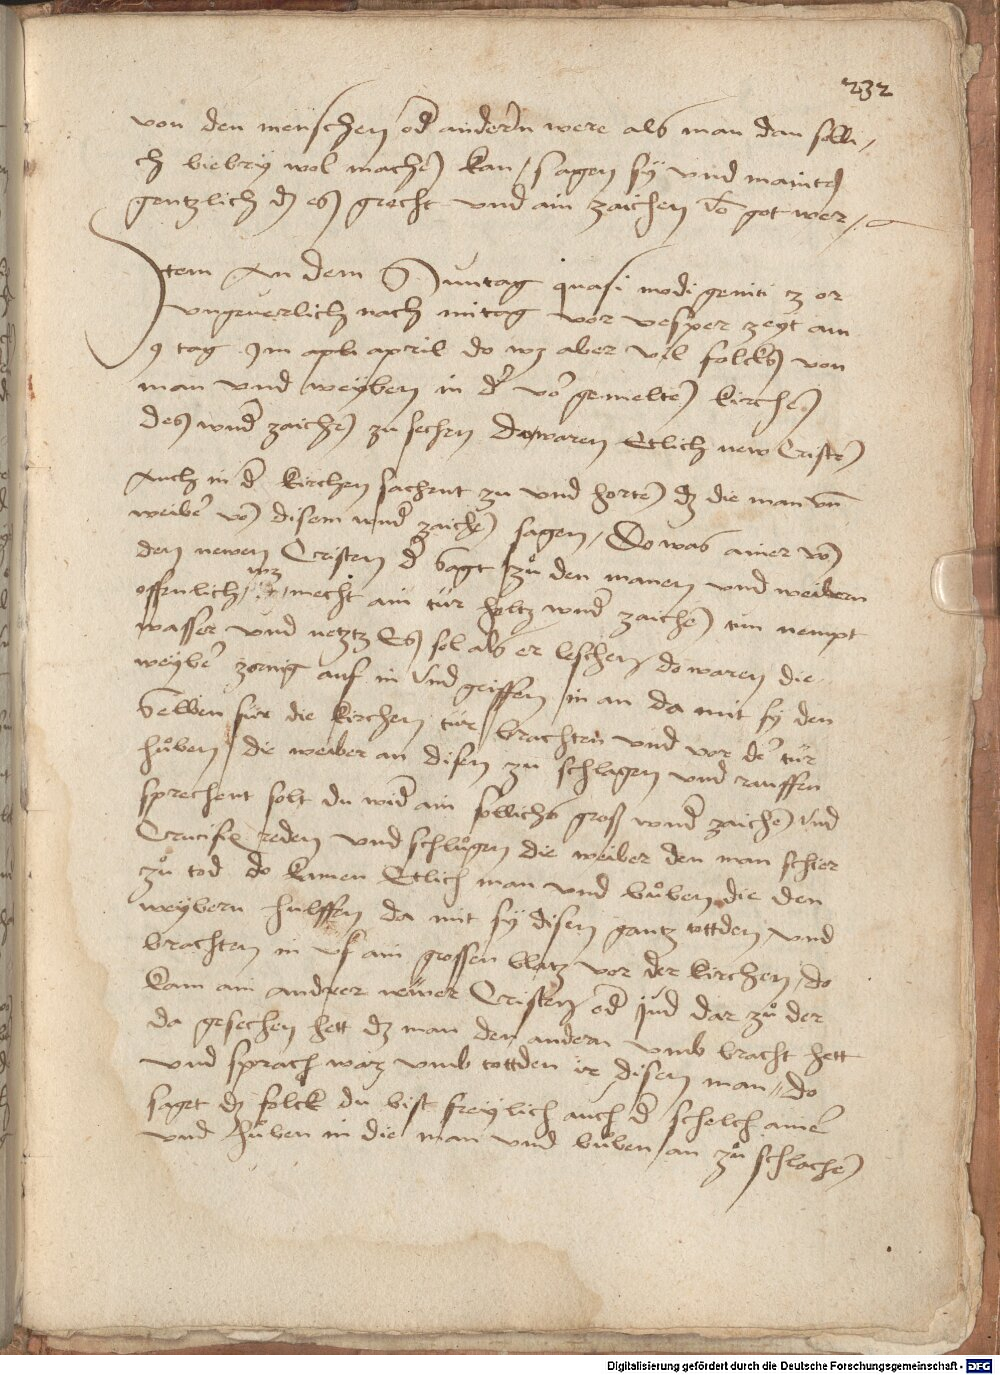 232
von den menschen od andern were als man dan solli
ch bieberÿ wol machen kan / sagen sÿ vnd mainten
gentzlich dz es gerecht vnd ain zaichen vo got wer /
Item An dem Suntag quasi modi geniti z or
vngeuerlich nach mitag vor vesper zeyt am
9 tag Im april do wz aber vil folcks von
man vnd weÿben in der vor gemelten kirchen
des wunder zaichen zu sechen Do waren Etlich new Cristen
Auch in der kirchen sachent zu vnd horten dz die man vnd
weiber von disem wunder zaichen sagen / Do was ainer von
den newen Cristen der sagt zů den manen vnd weibern
offenlich / wz mecht ain dür holtz wunder zaichen tun nempt
wasser vnd netztz Es sol als er leschen / do waren die
weÿber zornig auf in vnd griffen in an da mit sÿ den
selben für die kirchen tür brachten vnd vor der tür
hůben die weiber an disen zu schlagen vnd rauffen
sprechent solt du wider ain sollichs groß wunder zaichen vnd
Crucifix reden vnd schlůgen die weiber den man schier
zů tod do kamen Etlich man vnd bůben die den
weÿbern hulffen da mit sÿ disen gantz tottden vnd
brachten in vf ain grossen blatz vor der kirchen / do
kam ain andrer newer Cristen / oder jud dar zů der
da gesechen hett dz man den andern vmb bracht hett
vnd sprach warz vmb tottden ir disen man // do
saget dz folck du bist freÿlich auch der schelch ainer
vnd hůben in die man vnd bůben an zů schlachen
Digitalisierung gefördert durch die Deutsche Forschungsgemeinschaft - DFG